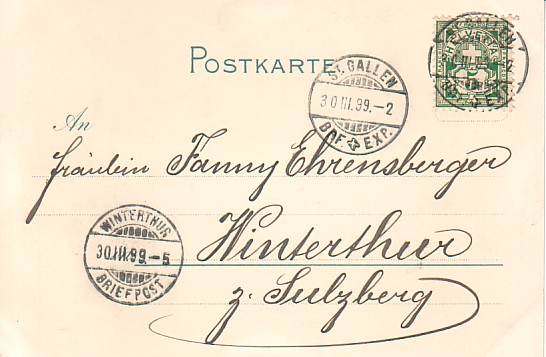 POSTKARTE
HELVETIA
ST. GALLEN
30 III. 99.–2
BRF. EXP.
An
Fräulein Fanny Ehrensberger
WINTERTHUR
30.III.99.–5
BRIEFPOST
Winterthur
z. Sulzberg